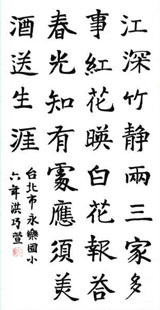 江深竹靜兩三家多
事紅花暎白花報荅
春光知有處應須美
酒送生涯
台北市永樂國小
六年洪巧萱